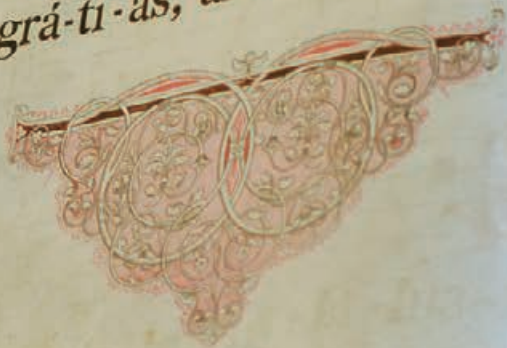 grá-ti-as,